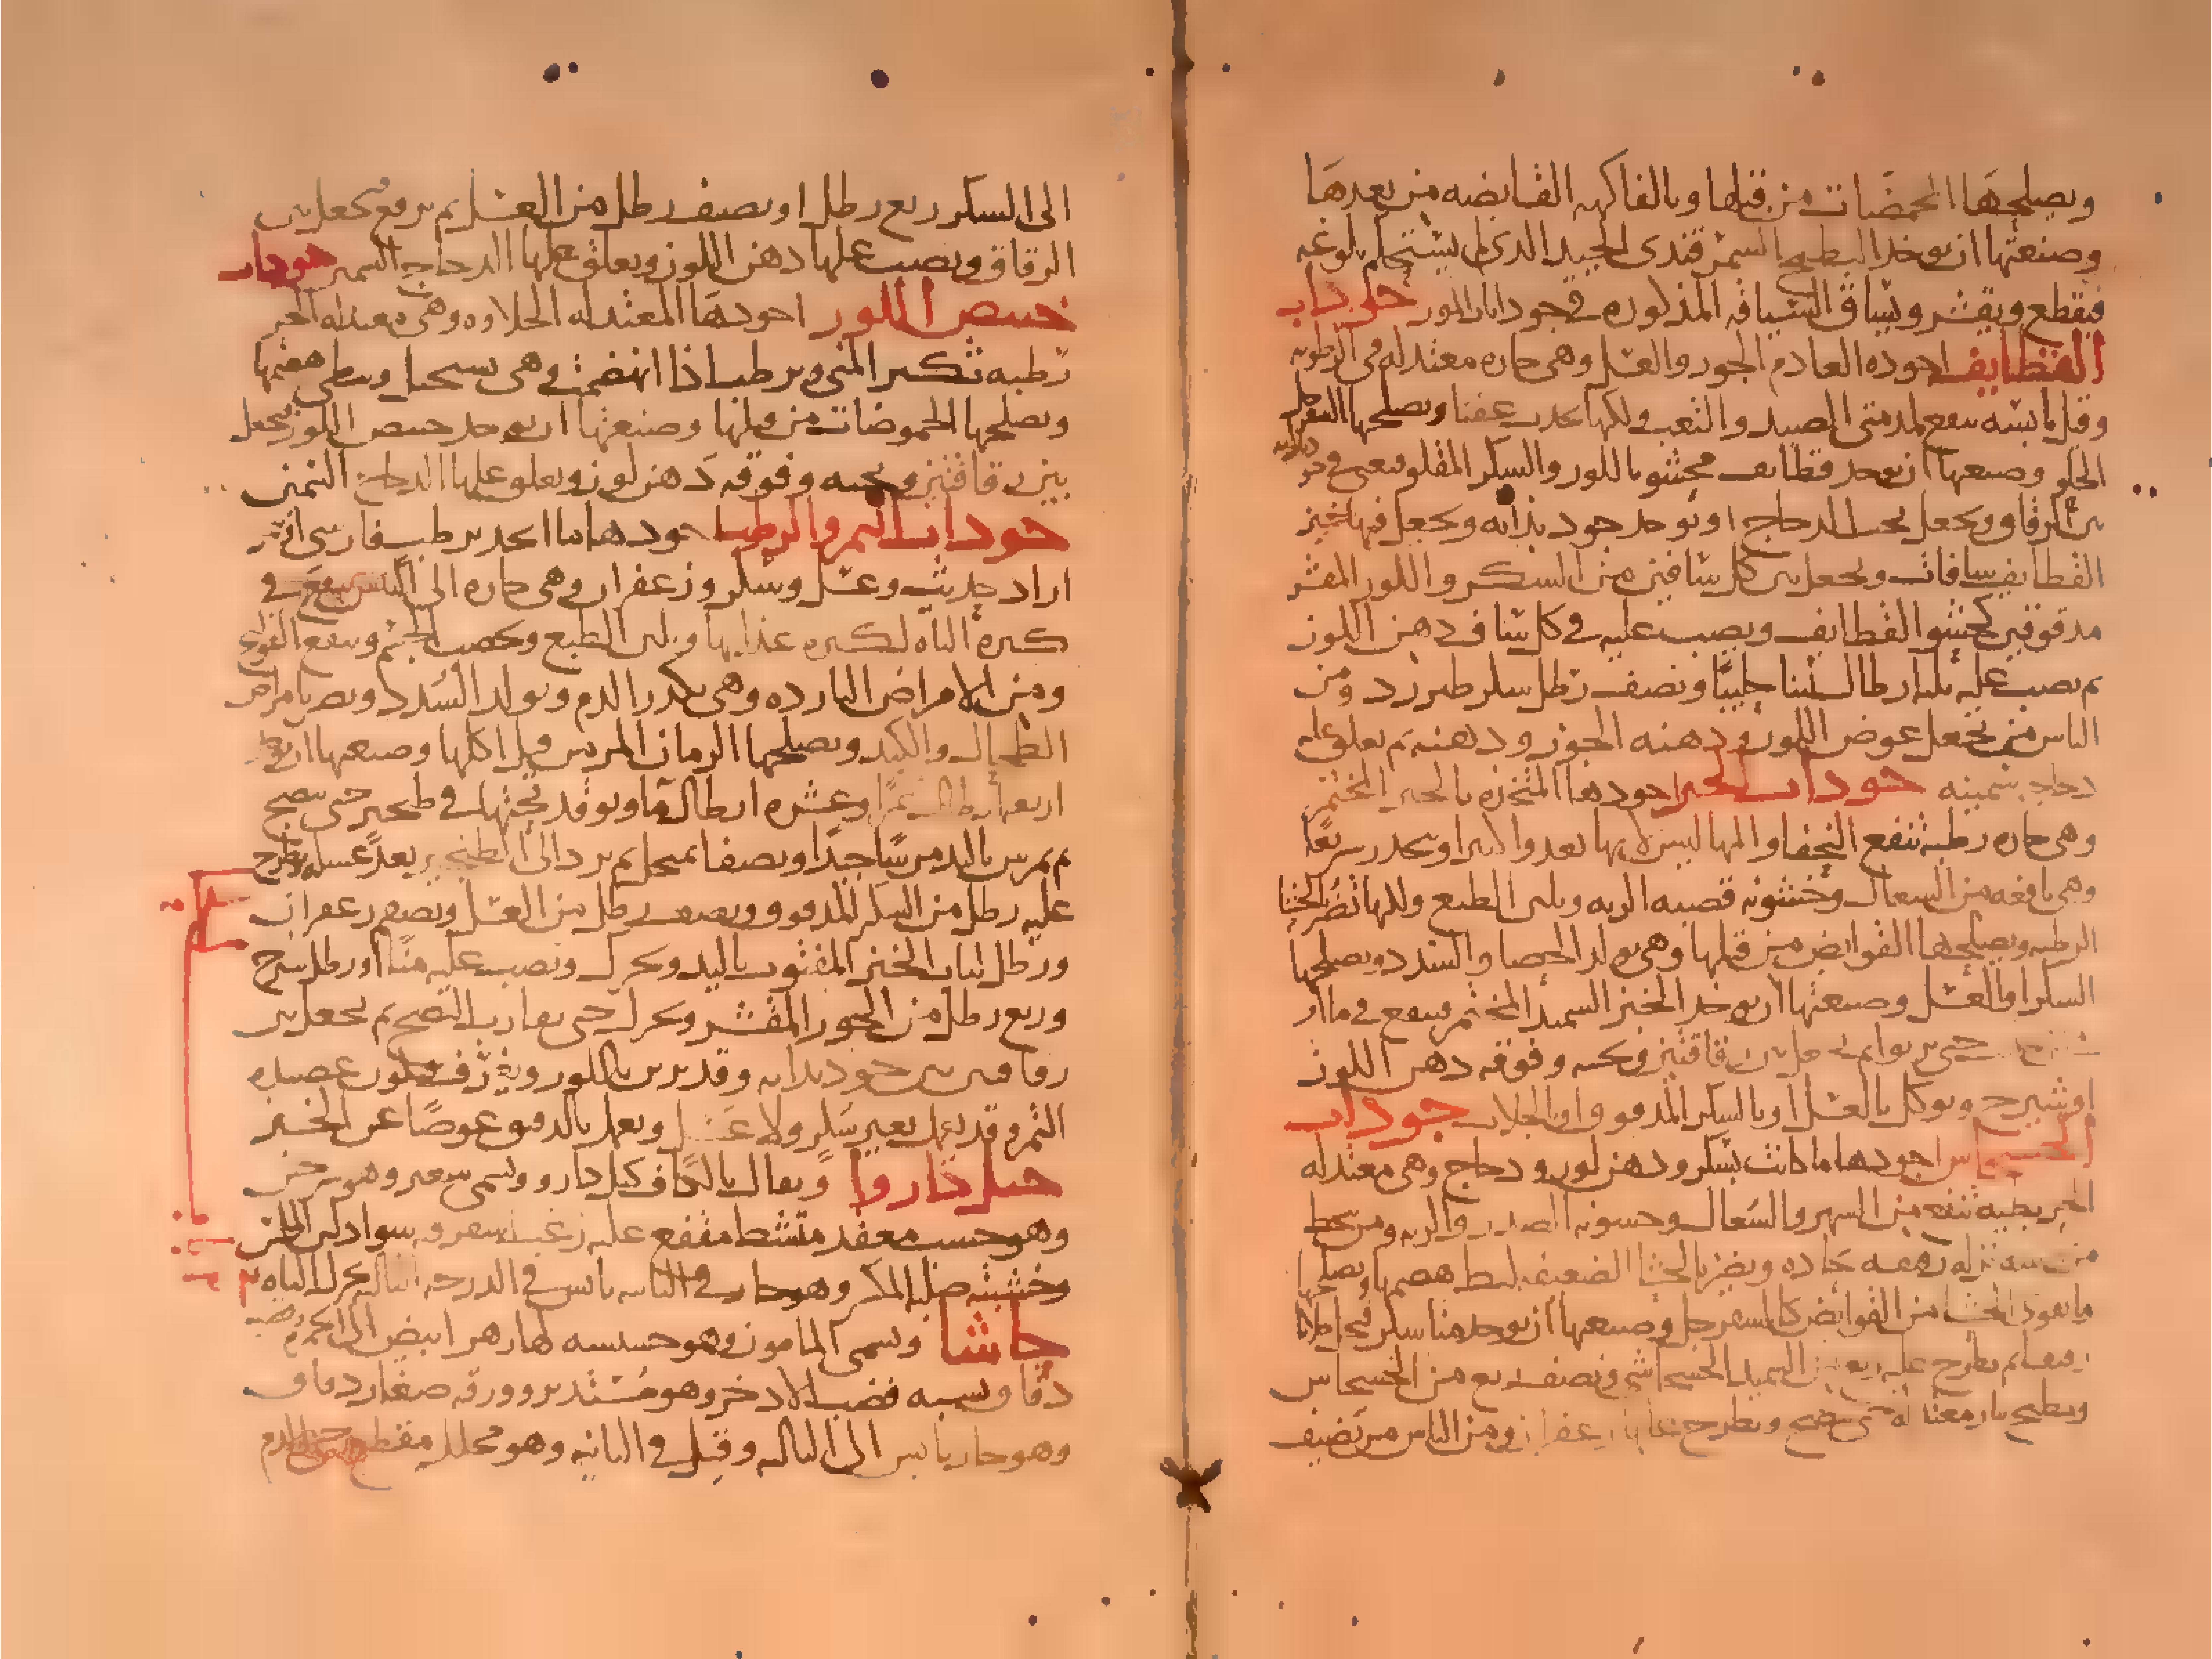 ويصلحها المحمضات من قبلها وبالفاكهه القابضه من بعدها
وصنعتها ان يوخد البطيخ السمرقندى الجيد الدى لم يستحكم بلوغه
فيقطع ويقشر ويساق السياقه المذكوره في جوداب اللوز جوداب
القطايف اجوده العادم الجوز والعسل وهي حاره معتدله في الرطوبه
وقيل يابسه تنفع لمدمنى الصيد والتعب ولكنها تحدث عفنا ويصلحها السفرجل
الحلو وصنعتها ان يوخد قطايف محشو باللوز والسكر المقلو فيعبى في
بين الرقاق ويجعل تحت الدجاج او يوخد جودابه ويجعل فيها خبز
القطايف سافات ويجعل بين كل سافين من السكر واللوز المقشر
مدقوقين كحشو القطايف ويصب عليه في كل ساف دهن اللوز
ثم يصب عليه ثلثه ارطال لبنا حليبا ونصف رطل سكر طبرزد ومن
الناس من يجعل عوض اللوز ودهنه الجوز ودهنه ثم يعلق عليه
دجاج سمينه جوداب الخبز اجودها المتخذه بالخبز المختمر
وهي حاره رطبه تنفع النحفا والمهاليس لانها تغدوا كثيرا وينحدر سريعا
وهي نافعه من السعال وخشونه قصبه الريه وتلين الطبع ولكنها تضر بالاحشا
الرطبه ويصلحها القوابض من قبلها وهي تولد الحصا والسدد ويصلحها
السكر او العسل وصنعتها ان يوخد الخبز السميد المختمر وينقع في ما او
حتى يربوا ثم يجعل بين رقاقتين وتحته وفوقه دهن اللوز
او شيرج ويوكل بالعسل او بالسكر المدقوق او بالجلاب جوداب
الخشخاش اجودها ما كانت بسكر ودهن لوز ودجاج وهي معتدله
الحر رطبه تنفع من السهر والسعال وخشونه الصدر والريه ومن ينحط
من نزله حاده ويضر بالاحشا الضعيفه لبط هضمها ويصلحها
ما يقوى الاحشا من القوابض كالسفرجل وصنعتها ان يوخد منا سكر
ثم يطرح عليه السميد الخشخاشي ونصف ربع من الخشخاش
ويطبخ بنار معتدله حتى ينضج ويطرح عليه زعفران ومن الناس من يضيف
الى السكر ربع رطل او نصف رطل من العسل ثم يرفع يجعل بين
الرقاق ويصب عليها دهن اللوز ويعلق عليها الدجاج السمين جوداب
خبيص اللوز اجودها المعتدله الحلاوه وهي معتدله الحر
رطبه تكثر المني وترطب اذا انهضمت وهي تستحيل وبطى هضمها
ويصلحها الحموضات من قبلها وصنعتها ان يوخد خبيص اللوز يجعل
بين رقاقتين وتحته وفوقه دهن لوز ويعلق عليها الدجاج السمين
جوداب التمر والرطب اجودها ما اتخد برطب فارسي او تمر
ازاد حديث وعسل وسكر وزعفران وهي حاره الى اليبس ينفع في
كثره الباه لكثره غذايها وتلين الطبع وتخصب الجسم وينفع القولنج
ومن الامراض البارده وهي تكدر الدم وتولد السدد ويضر بامراض
الطحال والكبد ويصلحها الرمان المز من قبل اكلها وصنعتها ان يوخد
اربعه ارطال تمرا وعشره ارطال ما ويوقد تحتها في طنجير حتى ينضج
ثم يمرس باليد مرسا جيدا ويصفا بمنخل ثم يرد الى الطنجير بعد غسله ويطرح
عليه رطل من السكر المدقوق ونصف رطل من العسل ونصف زعفران
ورطل لباب الخبز المفتوت باليد ويحرك ويصب عليه منا او رطل شيرج
وربع رطل من الجوز المقشر ويحرك حتى يقارب النضج ثم يجعل بين
رقاقتين بين جودابه وقد يزين باللوز ويغرف فيكون عصيده
التمر وقد يعمل بغير سكر ولا عسل ويعمل بالدقيق عوضا عن الخبز
جيل دارو ويقال بالكاف كيل دارو ويسمى سعير وهو سرخس
وهو خشب معقد متشظ مقفع عليه زغب اشعر وفيه سواد كبر الملمس
وخشبته صلبه المكسر وهو حار في الثانيه يابس في الدرجه الثالثه يحرك الباه
حاشا ويسمى المامون وهو حشيشه لها زهر ابيض الى الحمره وقضبه
دقاق يشبه قضب الادخر وهو مستدير وورقه صغار دقاق
وهو حار يابس الى الثالثه وقيل في الثانيه وهو محلل مقطع